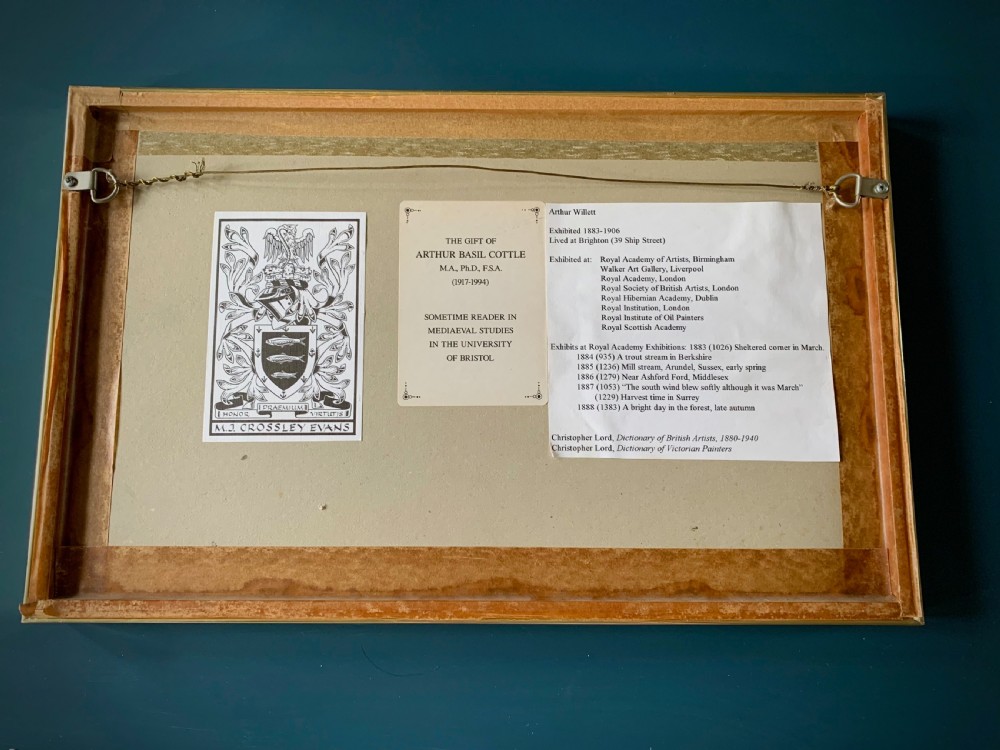 HONOR PRAEMIUM VIRTUTIS
M.J. CROSSLEY EVANS
THE GIFT OF
ARTHUR BASIL COTTLE
M.A., Ph.D., F.S.A.
(1917-1994)
SOMETIME READER IN
MEDIAEVAL STUDIES
IN THE UNIVERSITY
OF BRISTOL
Arthur Willett
Exhibited 1883-1906
Lived at Brighton (39 Ship Street)
Exhibited at: Royal Academy of Artists, Birmingham
Walker Art Gallery, Liverpool
Royal Academy, London
Royal Society of British Artists, London
Royal Hibernian Academy, Dublin
Royal Institution, London
Royal Institute of Oil Painters
Royal Scottish Academy
Exhibits at Royal Academy Exhibitions: 1883 (1026) Sheltered corner in March.
1884 (935) A trout stream in Berkshire
1885 (1236) Mill stream, Arundel, Sussex, early spring
1886 (1279) Near Ashford Ford, Middlesex
1887 (1053) “The south wind blew softly although it was March”
(1229) Harvest time in Surrey
1888 (1383) A bright day in the forest, late autumn
Christopher Lord, Dictionary of British Artists, 1880-1940
Christopher Lord, Dictionary of Victorian Painters